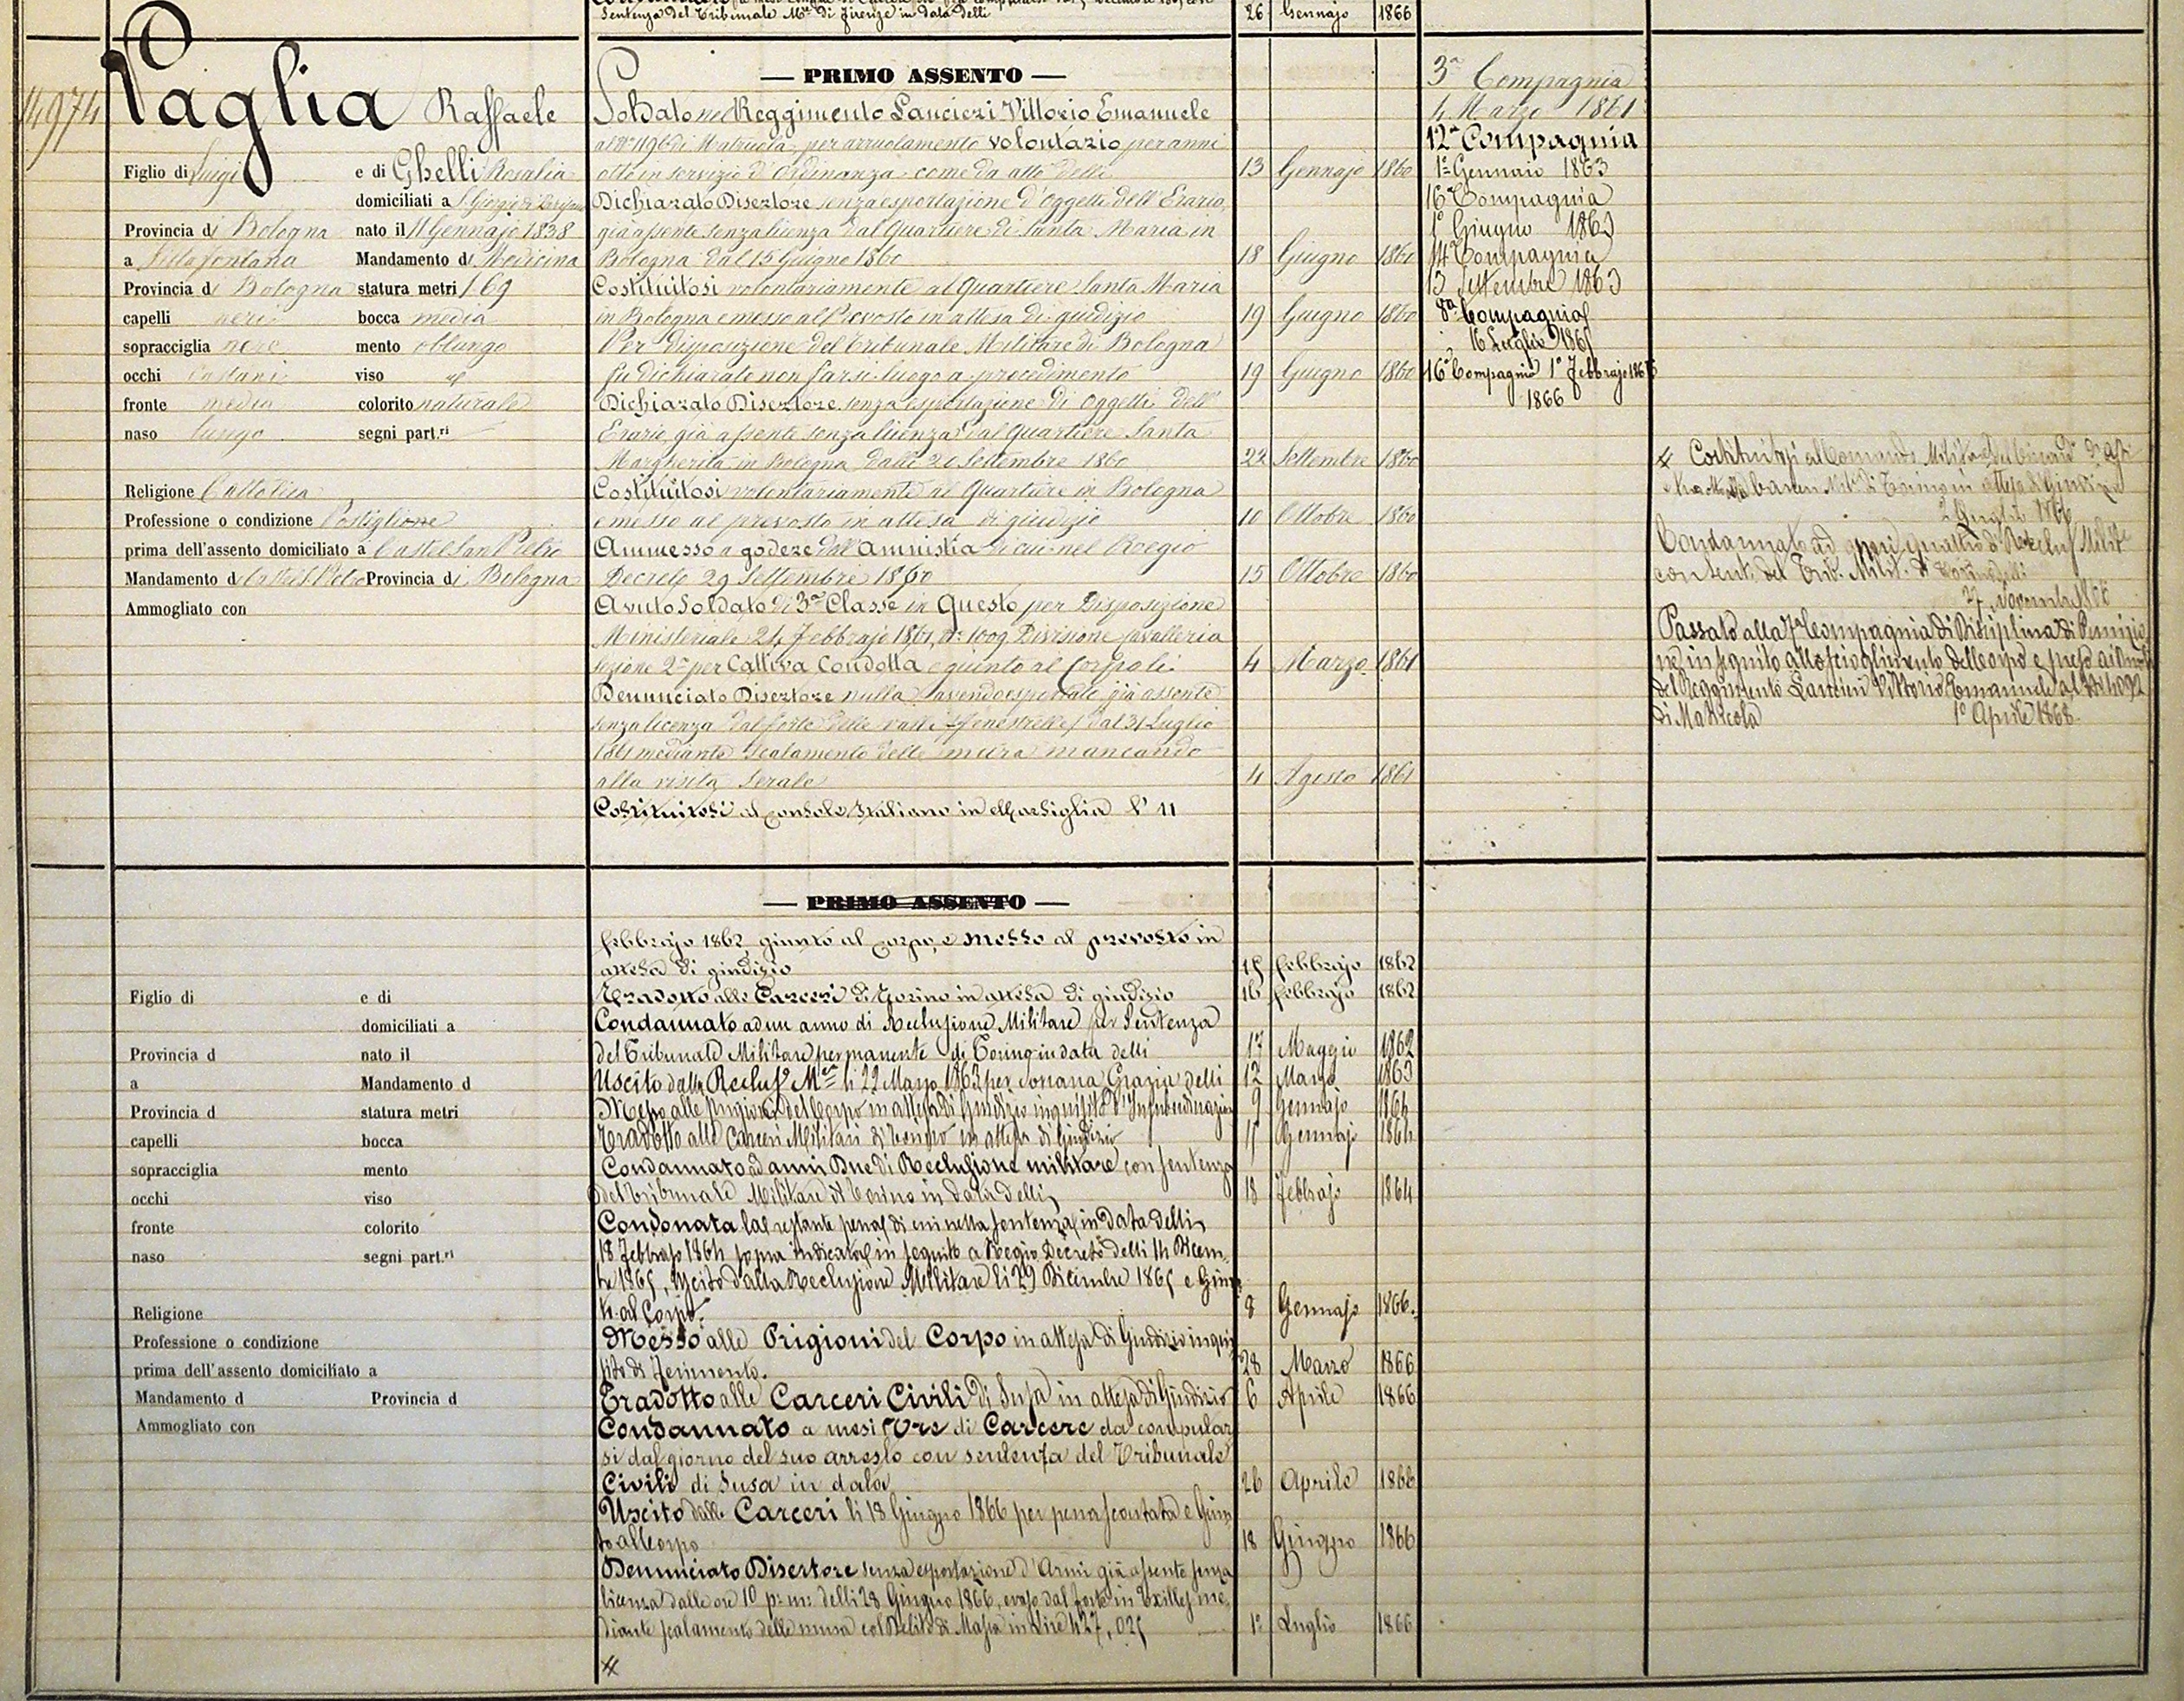 Sentenza del Tribunale M.re di Firenze in data delli 26 Gennajo 1866
14974
Paglia Raffaele
Figlio di Luigi e di Ghelli Rosalia
domiciliati a S. Giorgio di
Provincia di Bologna nato il 11 Gennajo 1838
a Sesto Fontana Mandamento di Medicina
Provincia di Bologna statura metri 1.69
capelli neri bocca media
sopracciglia nere mento oblungo
occhi castani viso id
fronte media colorito naturale
naso lungo segni part.ri
Religione Cattolica
Professione o condizione Postiglione
prima dell'assento domiciliato a Castel San Pietro
Mandamento di Castel S. Pietro Provincia di Bologna
Ammogliato con
— PRIMO ASSENTO —
Soldato nel Reggimento Lancieri Vittorio Emanuele
al N° 1196 di Matricola, per arruolamento volontario per anni
otto in servizio d'Ordinanza come da atto delli 13 Gennajo 1860
Dichiarato Disertore senza esportazione d'oggetti dell'Erario,
già assente senza licenza dal Quartiere di Santa Maria in
Bologna dal 15 Giugno 1860 18 Giugno 1860
Costituitosi volontariamente al Quartiere Santa Maria
in Bologna e messo al Prevosto in attesa di giudizio 19 Giugno 1860
Per disposizione del Tribunale Militare di Bologna
fu dichiarato non farsi luogo a procedimento 19 Giugno 1860
Dichiarato Disertore senza esportazione di oggetti dell'
Erario, già assente senza licenza dal Quartiere Santa
Margherita in Bologna dalli 20 Settembre 1860 22 Settembre 1860
Costituitosi volontariamente al Quartiere in Bologna
e messo al prevosto in attesa di giudizio 10 Ottobre 1860
Ammesso a godere dell'amnistia di cui nel Regio
Decreto 29 Settembre 1860 15 Ottobre 1860
Avuto Soldato di 3ª Classe in Questo per Disposizione
Ministeriale 24 Febbrajo 1861, N° 1009 Divisione Cavalleria
sezione 2ª per Cattiva Condotta e giunto al Corpo li 4 Marzo 1861
Denunciato Disertore nulla avendo esportato già assente
senza licenza dal forte delle valli (Fenestrelle) dal 31 Luglio
1861 mediante scalamento delle mura mancando
alla visita serale 4 Agosto 1861
Costituitosi al Console Italiano in Marsiglia l'11
3ª Compagnia
4 Marzo 1861
12ª Compagnia
1° Gennaio 1863
16 Compagnia
1° Giugno 1863
14 Compagnia
13 Settembre 1863
8ª Compagnia
16 Luglio 1865
16ª Compagnia 1° Febbrajo
1866
# Costituitosi al Comando Militare del Circond.
Carceri Mil.i di Torino in attesa di Giudizio
2 Luglio 1866
Condannato ad anni quattro di Reclus. Milit.
con sent. del Trib. Milit. di Torino delli
27 Novembre 1866
Passato alla 7ª Compagnia di Disciplina di Punizio
ne in seguito allo scioglimento del Corpo e preso ai Ruoli
del Reggimento Lancieri Vittorio Emanuele al N°
di Matricola 1° Aprile 1868
— PRIMO ASSENTO —
Figlio di e di
domiciliati a
Provincia d nato il
a Mandamento d
Provincia d statura metri
capelli bocca
sopracciglia mento
occhi viso
fronte colorito
naso segni part.ri
Religione
Professione o condizione
prima dell'assento domiciliato a
Mandamento d Provincia d
Ammogliato con
febbrajo 1862, giunto al corpo, e messo al prevosto in
attesa di giudizio 15 febbrajo 1862
Tradotto alle Carceri di Torino in attesa di giudizio 16 febbrajo 1862
Condannato ad un anno di Reclusione Militare per Sentenza
del Tribunale Militare permanente di Torino in data delli 17 Maggio 1862
Uscito dalla Reclus.e M.re li 22 Marzo 1863 per Sovrana Grazia delli 12 Marzo 1863
Messo alle prigioni del Corpo in attesa di Giudizio inquisito d'Insubordinazione 9 Gennajo 1864
Tradotto alle Carceri Militari di Torino in attesa di Giudizio 15 Gennajo 1864
Condannato ad anni Due di Reclusione militare con sentenza
del Tribunale Militare di Torino in data delli 18 febbrajo 1864
Condonata la restante pena di cui nella sentenza in data delli
18 Febbrajo 1864 sopra indicata in seguito a Regio Decreto delli 14 Dicem.
bre 1865, Uscito dalla Reclusione Militare li 29 Dicembre 1865 e Giun
to al Corpo. 8 Gennajo 1866.
Messo alle Prigioni del Corpo in attesa di Giudizio inqui
sito di ferimento. 28 Marzo 1866
Tradotto alle Carceri Civili di Susa in attesa di Giudizio 6 Aprile 1866
Condannato a mesi Tre di Carcere da computar
si dal giorno del suo arresto con sentenza del Tribunale
Civile di Susa in data 26 Aprile 1866
Uscito dalle Carceri li 18 Giugno 1866 per pena scontata e Giun
to al Corpo 18 Giugno 1866
Denunciato Disertore senza esportazione d'Armi già assente senza
licenza dalle ore 10 p: m: delli 28 Giugno 1866, evaso dal forte in Exilles me
diante scalamento delle mura col Debito di Massa in Lire 427,025 1° Luglio 1866
#